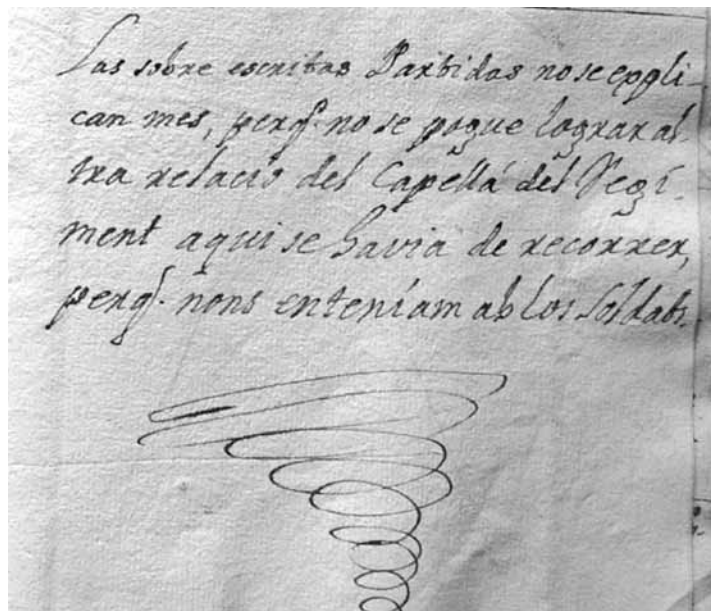 Las sobre escritas Partidas no se expli-
can mes, perq.^e no se pogue lograr al-
tra relació del Capellá del Regi-
ment aqui se havia de recorrer,
perq.^e nons enteniam ab los Soldats.